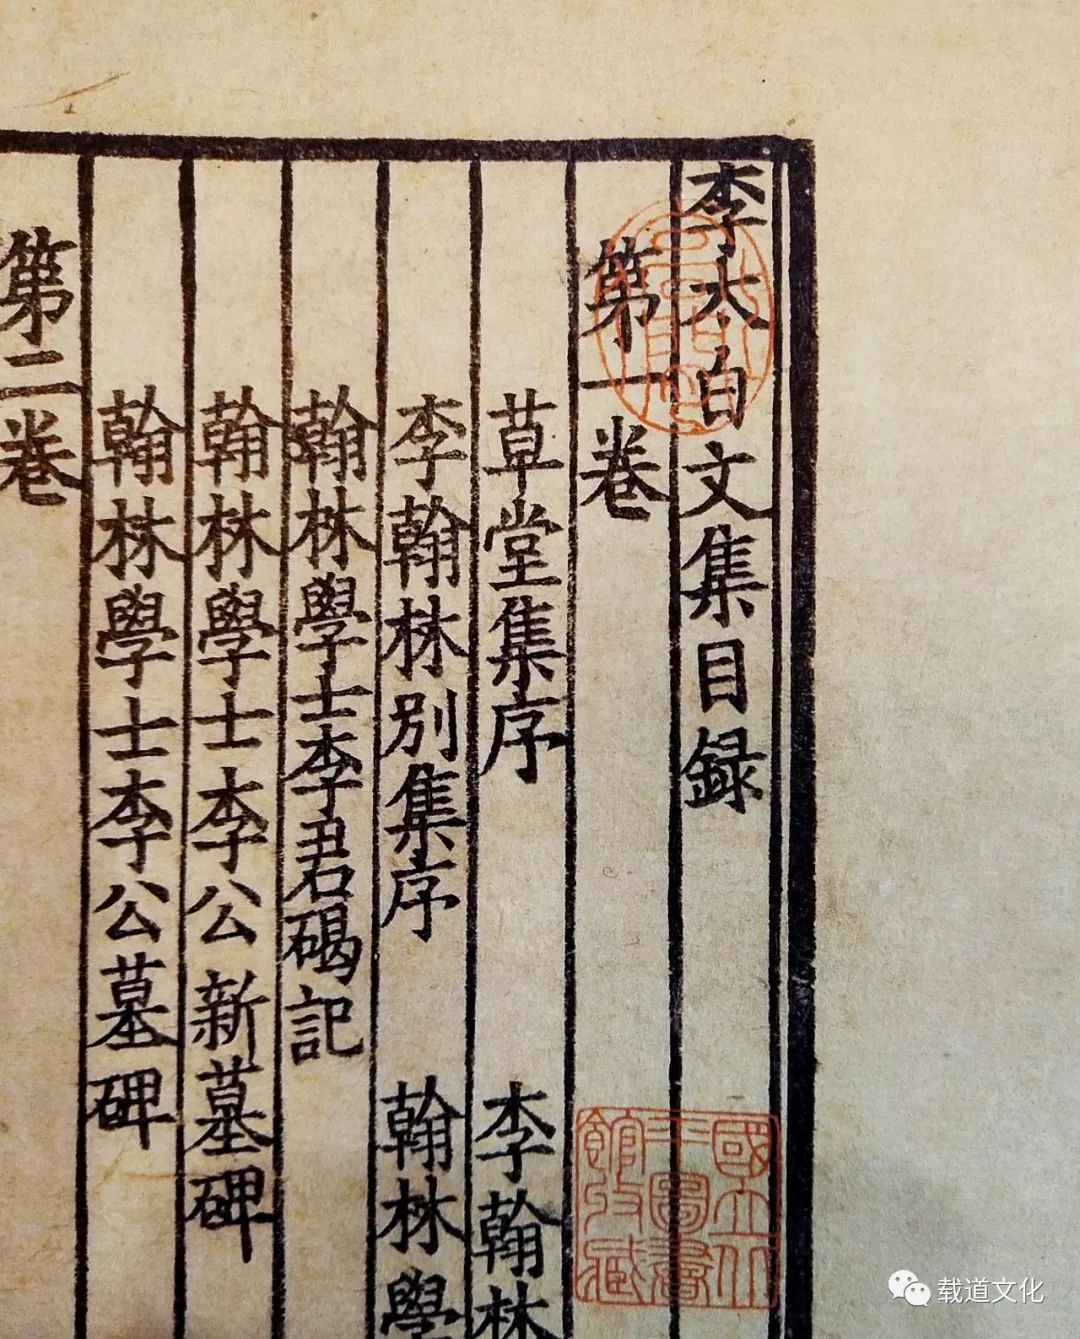 李太白文集目録
第一卷
草堂集序 李翰林
李翰林別集序 翰林學
翰林學士李君碣記
翰林學士李公新墓碑
翰林學士李公墓碑
第二卷
國立北
平圖書
館收藏
载道文化